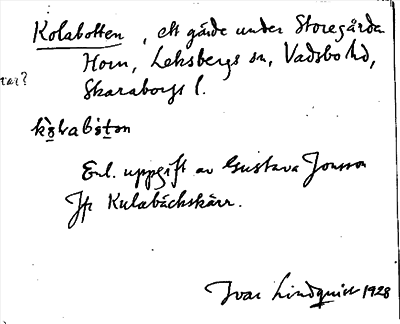 Kolabotten, ett gärde under Storegården
Horn, Leksbergs sn, Vadsbo hd,
Skaraborgs l.
Enl. uppgift av Gustava Jonsson
Jfr Kulabäckskärr.
Ivar Lindquist 1928